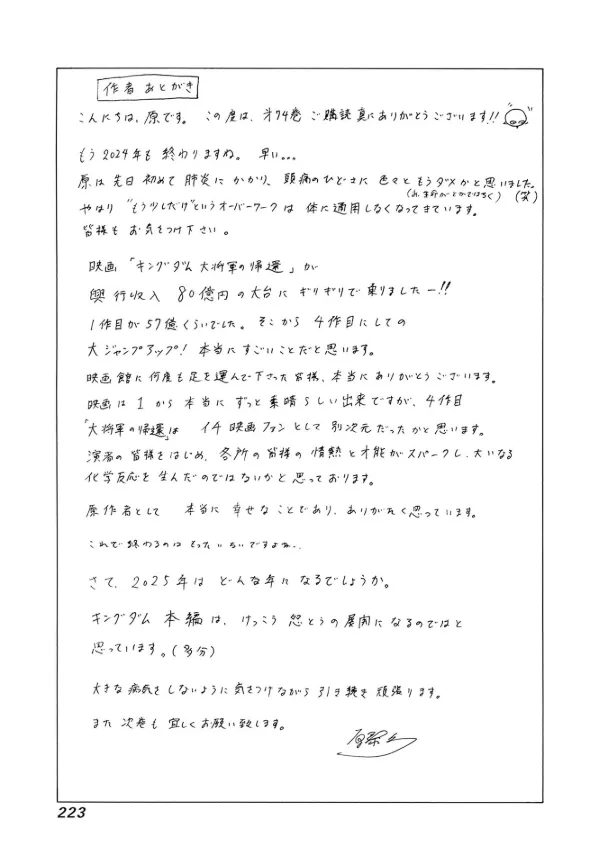 作者あとがき
こんにちは、原です。この度は、第74巻ご購読真にありがとうございます!!
もう2024年も終わりますね。早い…
原は先日初めて肺炎にかかり、頭痛のひどさに色々ともうダメかと思いました。
(あ、生命がとかではなく)(笑)
やはり"もう少しだけ"というオーバーワークは体に通用しなくなってきています。
皆様もお気をつけ下さい。
映画「キングダム大将軍の帰還」が
興行収入80億円の大台にギリギリで乗りましたー!!
1作目が57億くらいでした。そこから4作目にしての
大ジャンプアップ!本当にすごいことだと思います。
映画館に何度も足を運んで下さった皆様、本当にありがとうございます。
映画は1から本当にずっと素晴らしい出来ですが、4作目
「大将軍の帰還」はイチ映画ファンとして別次元だったかと思います。
演者の皆様をはじめ、各所の皆様の情熱と才能がスパークし、大いなる
化学反応を生んだのではないかと思っております。
原作者として本当に幸せなことであり、ありがたく思っています。
これで終わるのはもったいないですよね…
さて、2025年はどんな年になるでしょうか。
キングダム本編は、けっこう怒とうの展開になるのではと
思っています。(多分)
大きな病気をしないように気をつけながら引き続き頑張ります。
また次巻も宜しくお願い致します。
原泰久
223